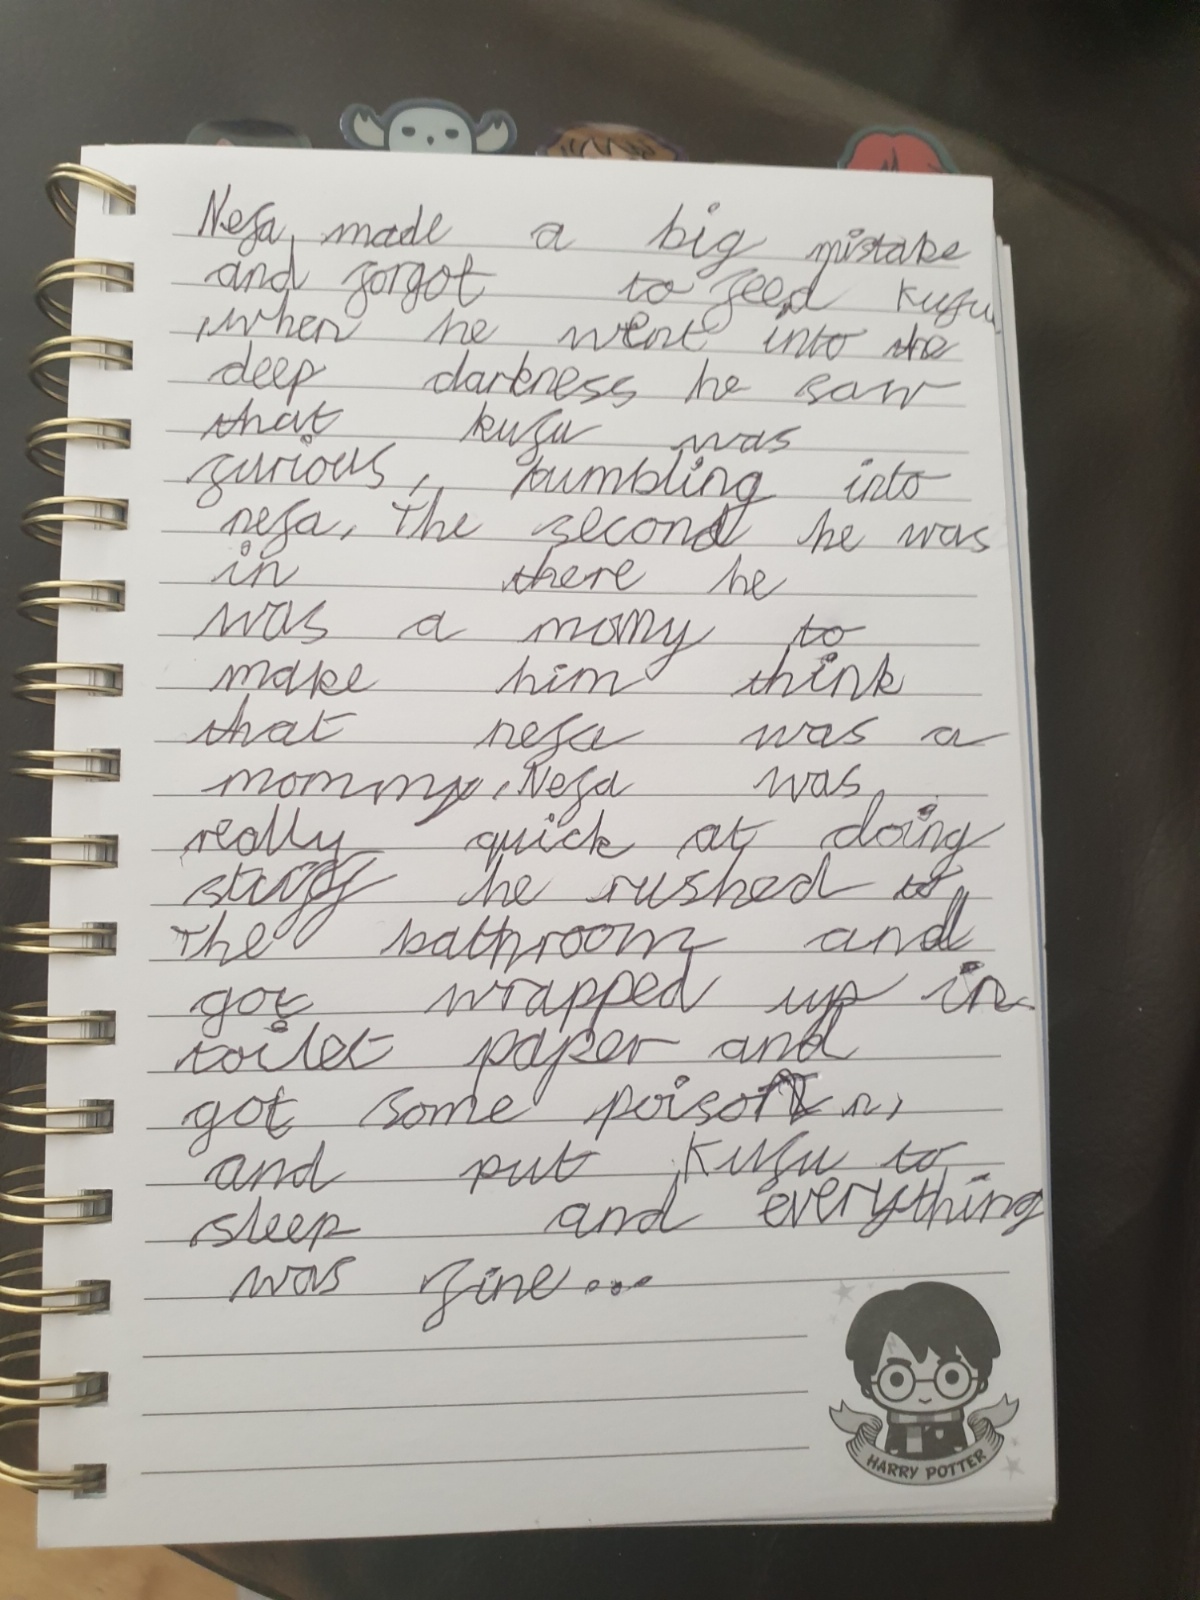 Nefa, made a big mistake
and forgot to feed Kufu,
when he went into the
deep darkness he saw
that kufu was
furious, bumbling into
nefa, The second he was
in there he
was a momy to
make him think
that nefa was a
mommy, Nefa was
really quick at doing
stuff he rushed to
The bathroom and
got wrapped up in
toilet paper and
got some poison,
and put Kufu to
sleep and everything
was fine...
HARRY POTTER